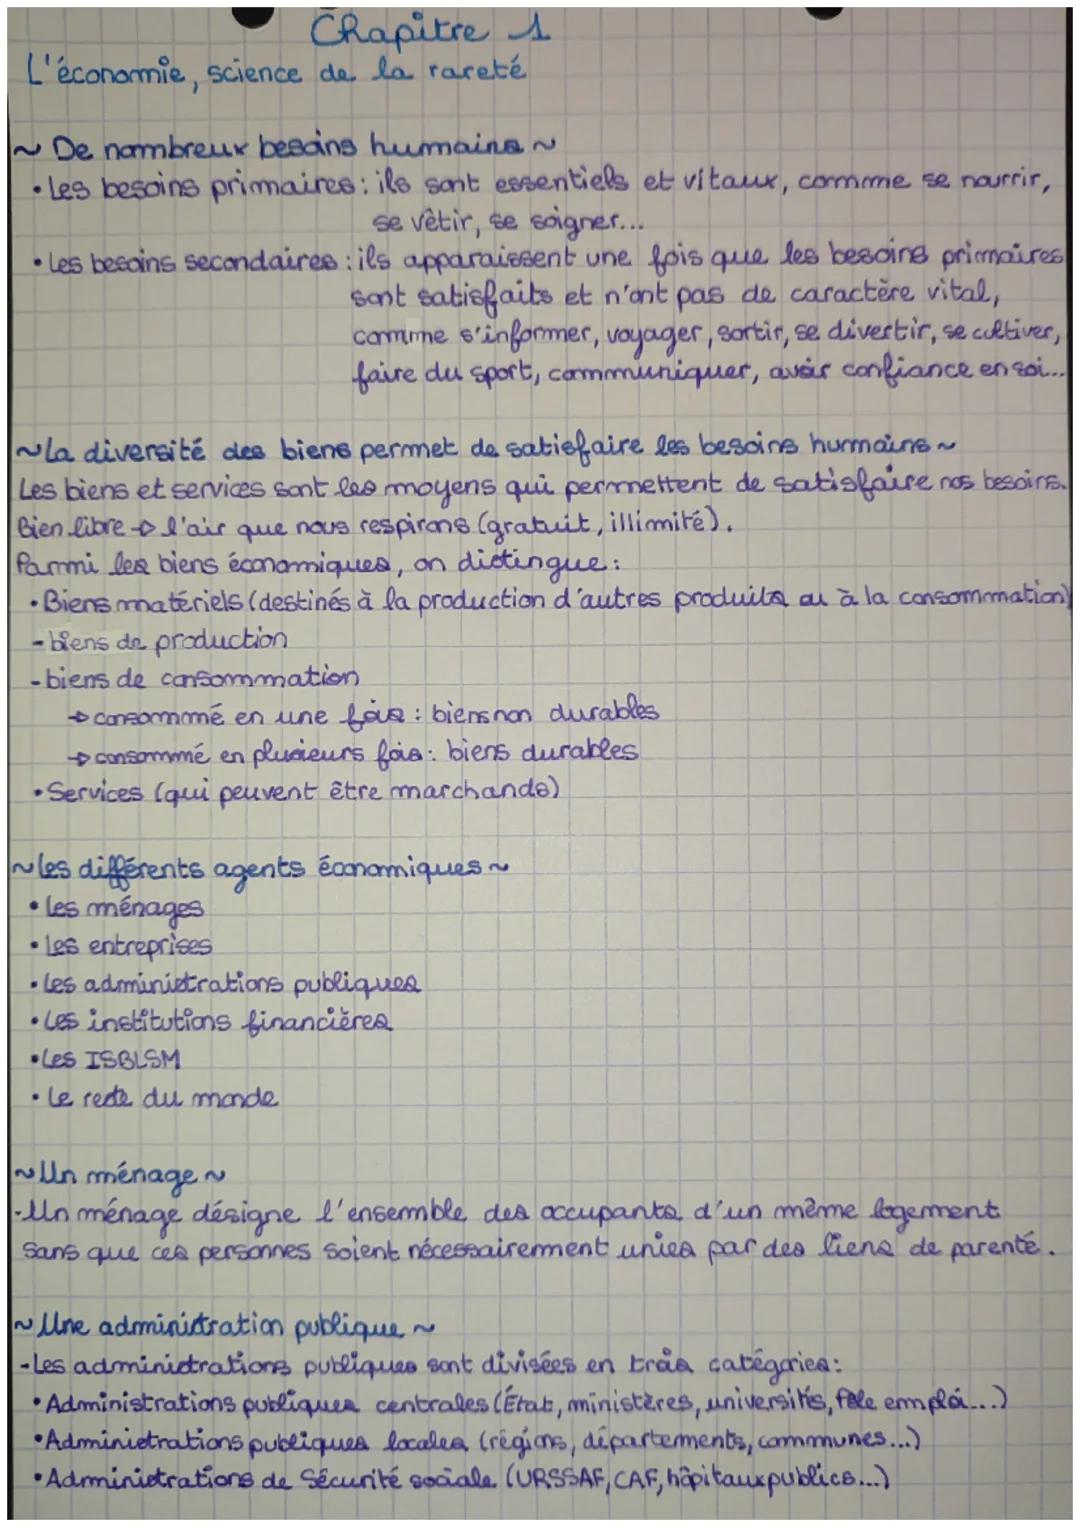 Chapitre 1
L'économie, science de la rareté
~ De nombreux besoins humains ~
• Les besoins primaires : ils sont essentiels et vitaux, comme se nourrir,
se vêtir, se soigner...
• Les besoins secondaires : ils apparaissent une fois que les besoins primaires
sont satisfaits et n'ont pas de caractère vital,
comme s'informer, voyager, sortir, se divertir, se cultiver,
faire du sport, communiquer, avoir confiance en soi...
~ La diversité des biens permet de satisfaire les besoins humains ~
Les biens et services sont les moyens qui permettent de satisfaire nos besoins.
Bien libre → l'air que nous respirons (gratuit, illimité).
Parmi les biens économiques, on distingue :
• Biens matériels (destinés à la production d'autres produits ou à la consommation)
- biens de production
- biens de consommation
→ consommé en une fois : biens non durables
→ consommé en plusieurs fois : biens durables
• Services (qui peuvent être marchands)
~ Les différents agents économiques ~
• Les ménages
• Les entreprises
• Les administrations publiques
• Les institutions financières
• Les ISBLSM
• Le reste du monde
~ Un ménage ~
- Un ménage désigne l'ensemble des occupants d'un même logement
sans que ces personnes soient nécessairement unies par des liens de parenté.
~ Une administration publique ~
- Les administrations publiques sont divisées en trois catégories :
• Administrations publiques centrales (État, ministères, universités, Pôle emploi...)
• Administrations publiques locales (régions, départements, communes...)
• Administrations de Sécurité sociale (URSSAF, CAF, hôpitaux publics...)